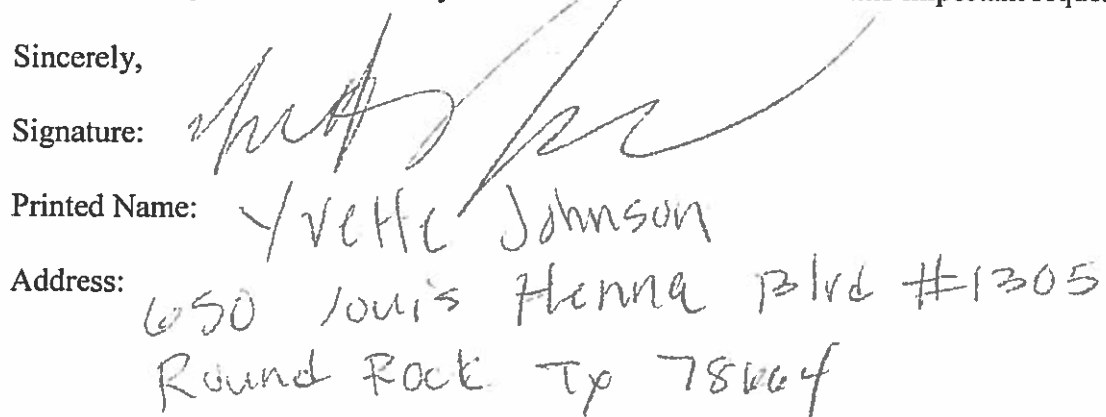 Sincerely,
Signature:
Printed Name: Yvette Johnson
Address: 650 Louis Henna Blvd #1305
Round Rock Tx 78664